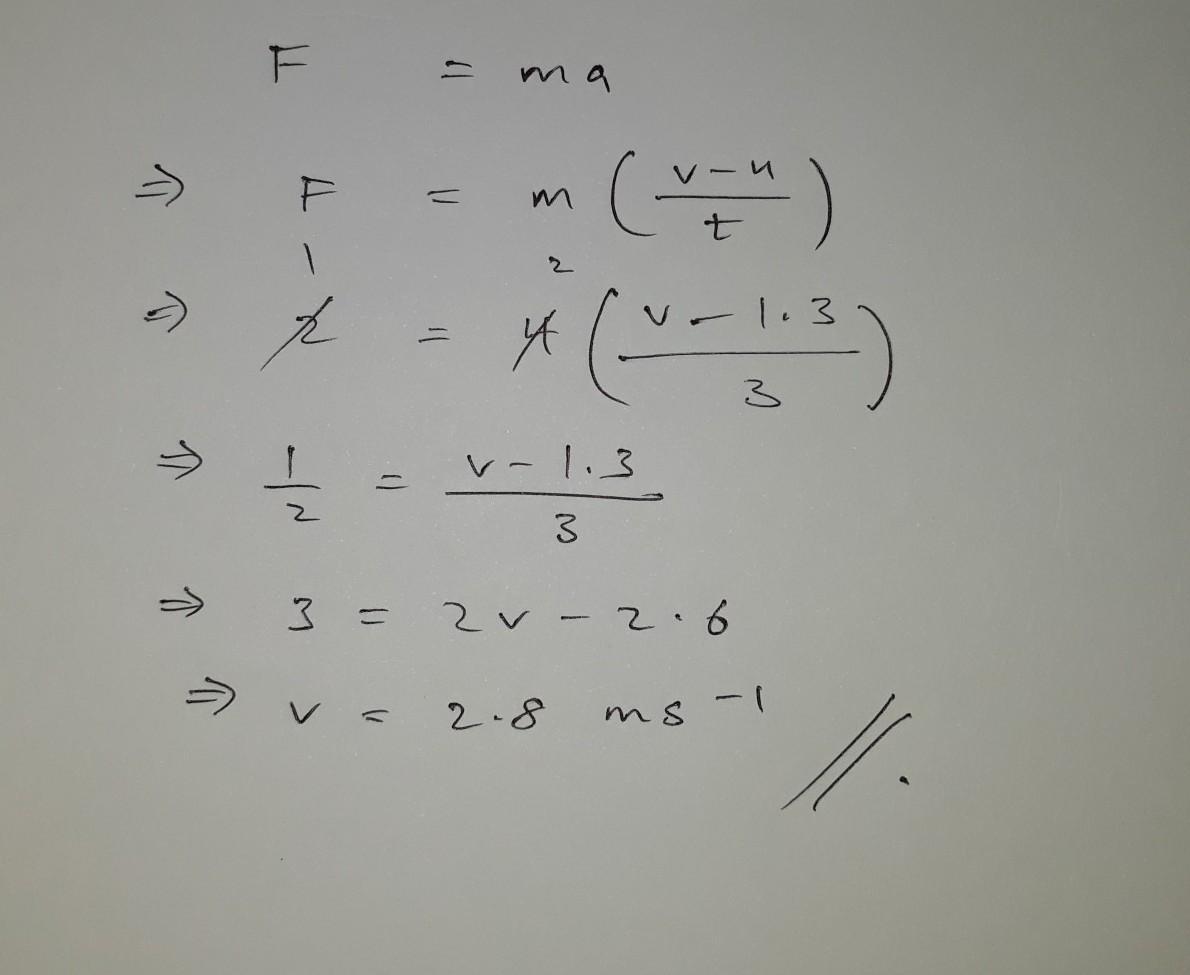 F = ma
⇒ F = m (v-u / t)
1 2
⇒ 2 = 4 (v - 1.3 / 3)
⇒ 1/2 = v - 1.3 / 3
⇒ 3 = 2v - 2.6
⇒ v = 2.8 ms⁻¹ //.